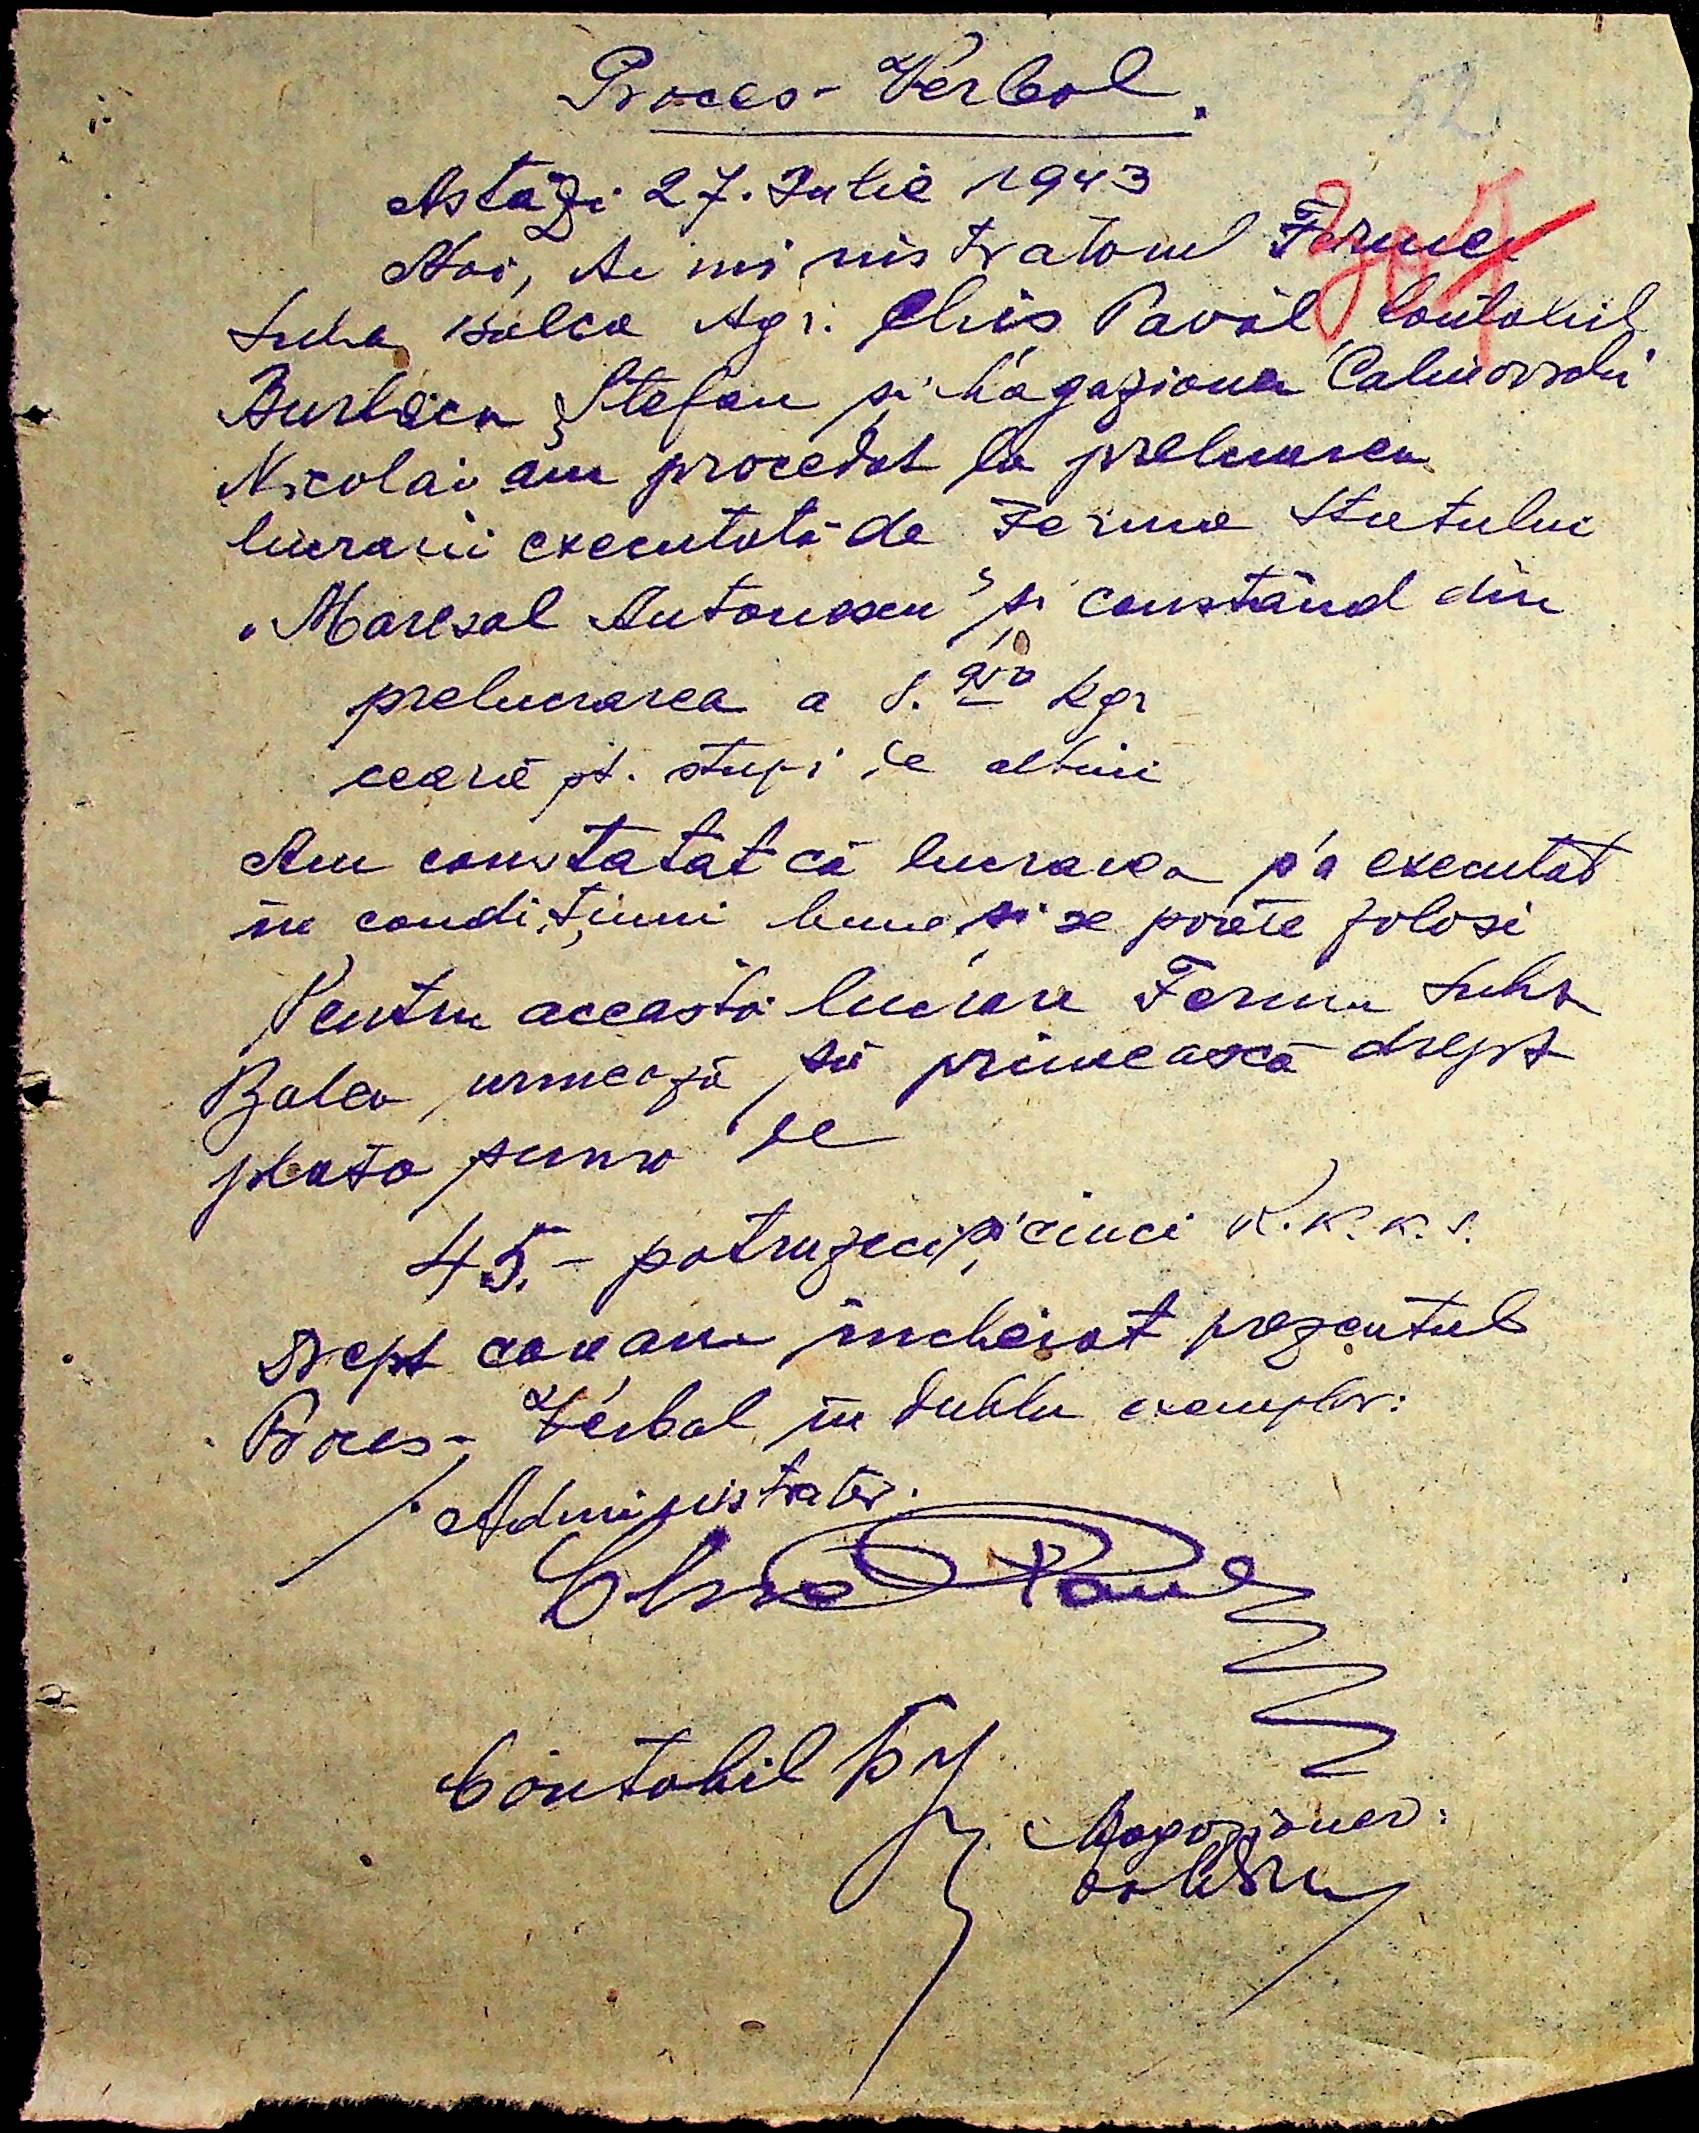 Proces-Verbal.
52
Astăzi 27. Iulie 1943
Noi, Administratorul Fermei
Suha Balca Agr. Chis Pavăl, Contabil
Burlacu Ștefan și Magazioner Calinovschi
Nicolai am procedat la preluarea
lucrării executată de Ferma Statului
„Mareșal Antonescu” și constând din
prelucrarea a 8. kgr
ceară pt. stupi de albini
Am constatat că lucrarea s'a executat
în condițiuni bune și se poate folosi
Pentru această lucrare Ferma Suha
Balca urmează să primească drept
plata suma de
45.- patruzeci și cinci R.K.K.S.
Drept care am încheiat prezentul
Proces-Verbal în dublu exemplar:
Administrator.
Chis Pavel
Contabil
Magazioner: